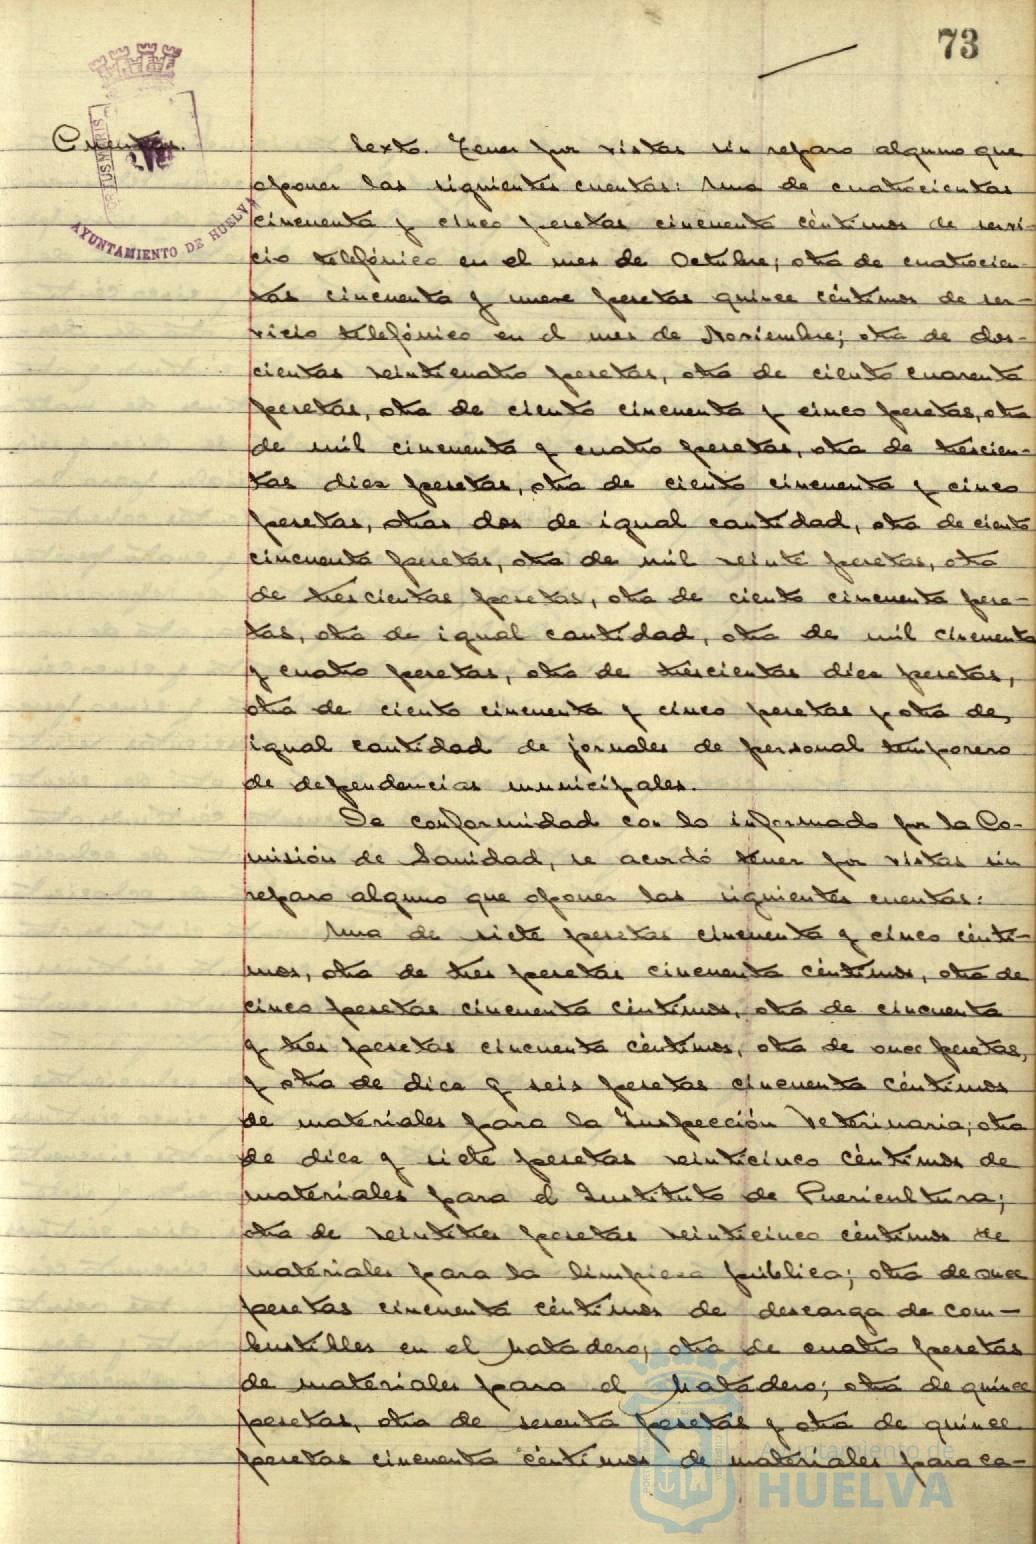 73
Cuentas.
Sexto. Tener por vistas sin reparo alguno que
oponer las siguientes cuentas: Una de cuatrocientas
cincuenta y cinco pesetas cincuenta céntimos de servi-
cio telefónico en el mes de Octubre; otra de cuatrocien-
tas cincuenta y nueve pesetas quince céntimos de ser-
vicio telefónico en el mes de Noviembre; otra de dos-
cientas veinticuatro pesetas, otra de ciento cuarenta
pesetas, otra de ciento cincuenta y cinco pesetas, otra
de mil cincuenta y cuatro pesetas, otra de trescien-
tas diez pesetas, otra de ciento cincuenta y cinco
pesetas, otras dos de igual cantidad, otra de ciento
cincuenta pesetas, otra de mil veinte pesetas, otra
de trescientas pesetas, otra de ciento cincuenta pese-
tas, otra de igual cantidad, otra de mil cincuenta
y cuatro pesetas, otra de trescientas diez pesetas,
otra de ciento cincuenta y cinco pesetas y otra de
igual cantidad de jornales de personal temporero
de dependencias municipales.
De conformidad con lo informado por la Co-
misión de Sanidad, se acordó tener por vistas sin
reparo alguno que oponer las siguientes cuentas:
Una de siete pesetas cincuenta y cinco cénti-
mos, otra de tres pesetas cincuenta céntimos, otra de
cinco pesetas cincuenta céntimos, otra de cincuenta
y tres pesetas cincuenta céntimos, otra de once pesetas,
y otra de diez y seis pesetas cincuenta céntimos
de materiales para la Inspección Veterinaria; otra
de diez y siete pesetas veinticinco céntimos de
materiales para el Instituto de Puericultura;
otra de veintitres pesetas veinticinco céntimos de
materiales para la limpieza pública; otra de once
pesetas cincuenta céntimos de descarga de com-
bustibles en el Matadero; otra de cuatro pesetas
de materiales para el Matadero; otra de quince
pesetas, otra de sesenta pesetas y otra de quince
pesetas cincuenta céntimos de materiales para ca-
AYUNTAMIENTO DE HUELVA
Ayuntamiento de
HUELVA